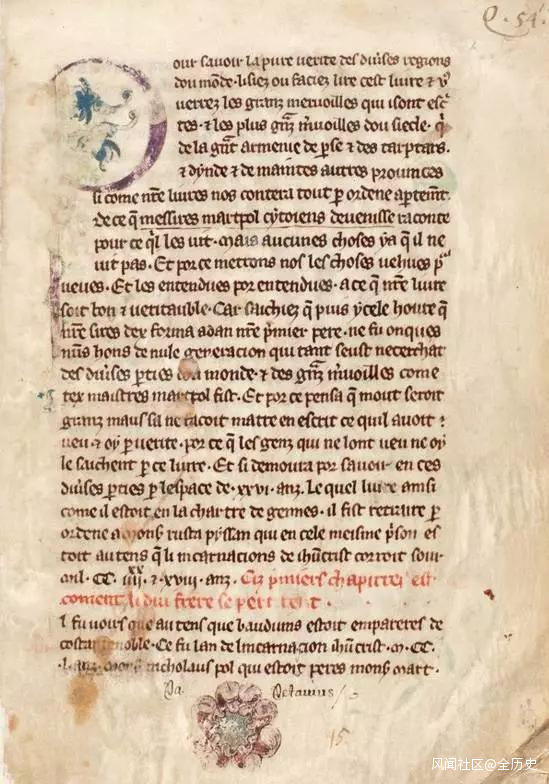 Q. 54.
our sauoir la pure verite des diúses regions
dou mōde · lisiez ou faciez lire cest liure ⁊ v̄
verrez les granz meruoilles qui isont esc̄
tes · ⁊ les plus gn̄z m̄uoilles dou siecle · q̄
de la gn̄t armenie de p̄se ⁊ des tarptars .
⁊ dynde ⁊ de maintes autres prouinces
si come nr̄e liures nos contera tout p̄ ordene apertemt̄ .
de ce q̄ messires marcpol cytoiens de uenisse raconte
pour ce q̄l les uit · mais aucunes choses ya q̄ il ne
uit pas . Et por ce mettons nos les choses uehues p̄
ueues . Et les entendues por entendues · a ce q̄ nr̄e liure
soit bon ⁊ ueritauble · Car saichiez q̄ puis ycele houre q̄
nr̄e sires dex forma adan nr̄e p̄mier pere · ne fu onques
nūs hons de nule generacion qui tant seust ne cerchat
des diúses p̄ties dou monde · ⁊ des gn̄z m̄uoilles come
tex maistres marcpol fist . Et por ce pensa q̄ mout seroit
granz maus sa ne facoit mattre en escrit ce quil auoit :
ueu · ⁊ oy p̄ uerite · por ce q̄ les genz qui ne lont ueu ne oy
le saichent p̄ ce liure . Et si demoura por sauoir en ces
diúses p̄ties p̄ lespace de · xxvi · anz . Le quel liure ainsi
come il estoit en la chartre de gennes · il fist retraire p̄
ordene a mons̄ rusta pysan qui en cele meisme p̄son es
toit au tens q̄ li incarnacions de ih̄ucrist corroit sour
mil · CC . iiii xx · ⁊ · xviii · anz . Ciz p̄miers chapitres est
coment li dui frere se
l fu uoirs que au tens que bauduins estoit empareres de
costantinoble · Ce fu lan de lincarnacion ih̄ucrist · m · CC .
· l · anz · mons̄ nicholaus pol qui estoit peres mons̄ marc .
Pa. Petauius
15
风闻社区@全历史